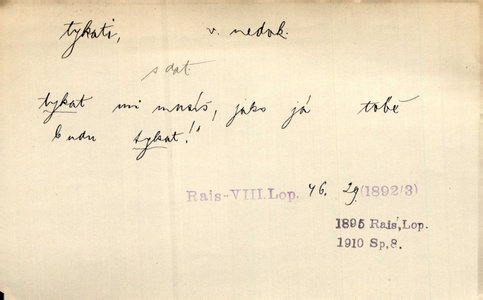 tykati, v. nedok.
s dat.
tykat mi musíš, jako já tobě
budu tykat!"
Rais-VIII.Lop. 46. 29 (1892/3)
1895 Rais, Lop.
1910 Sp. 8.